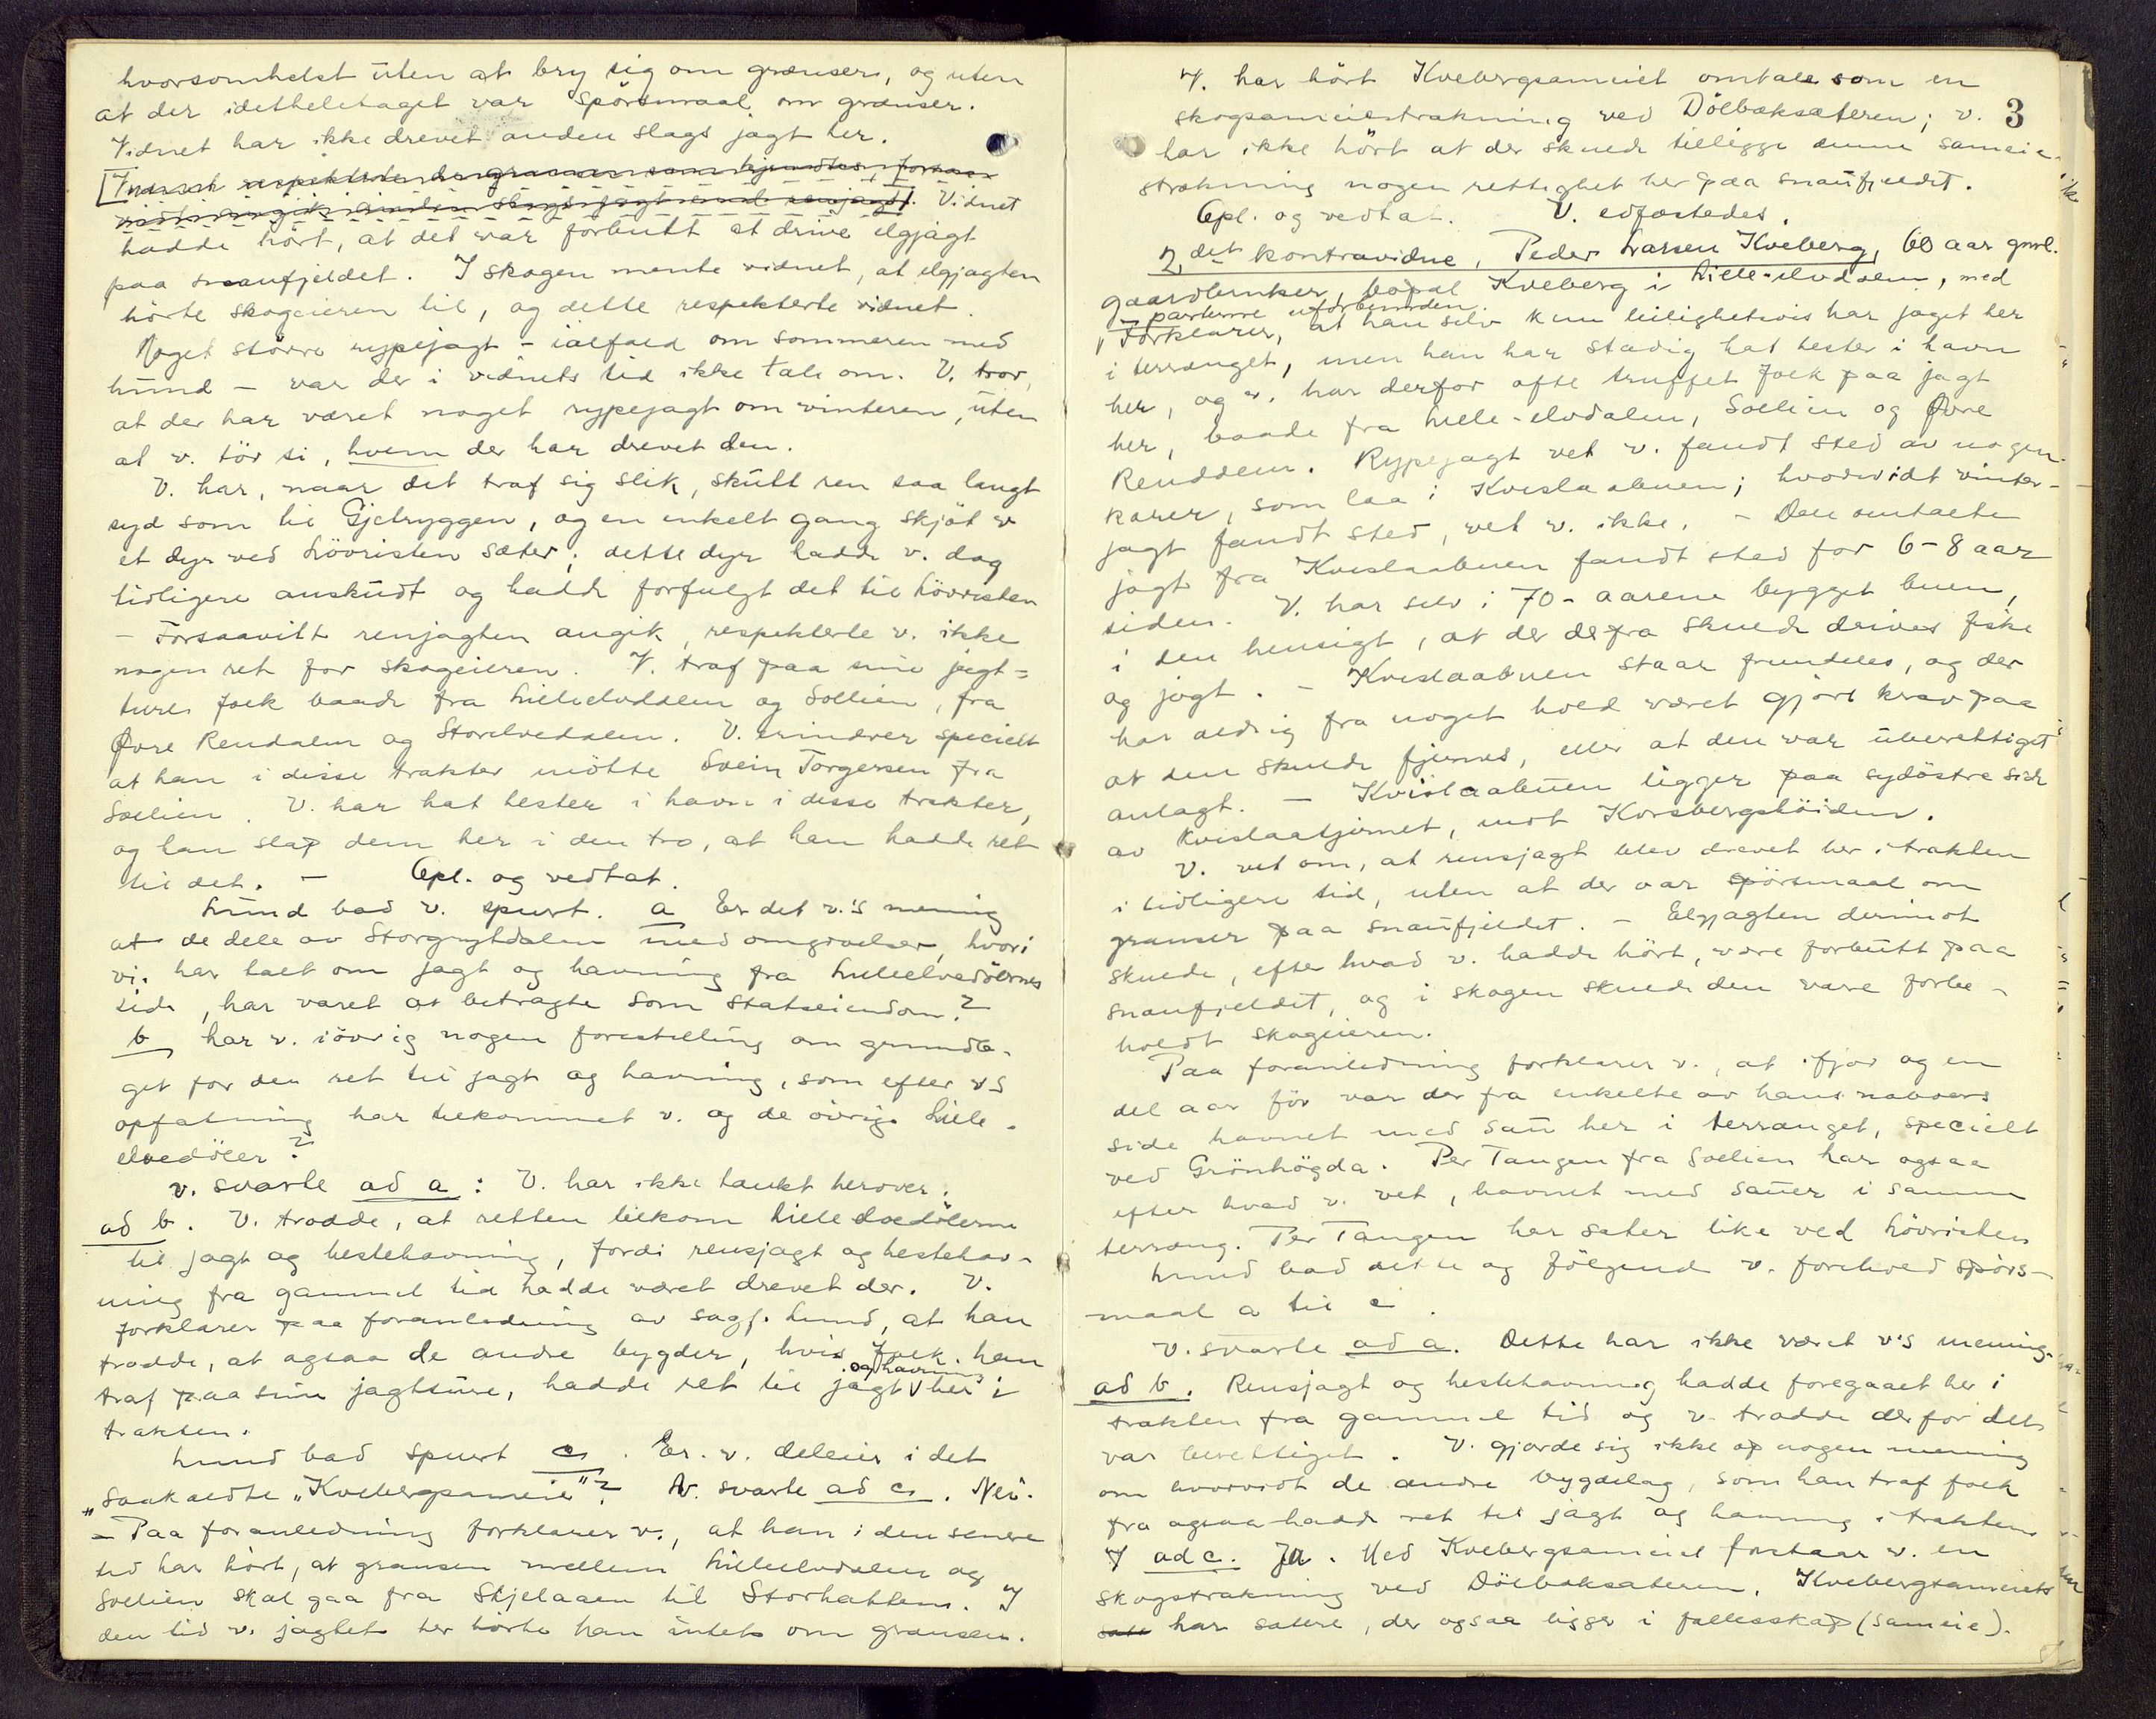 hvorsomhelst uten at bry sig om grænsen, og uten
at der idetheletaget var spörsmaal om grænser.
Vidnet har ikke drevet anden slags jagt her.
respekterte de grænser som kjendtes, forsaa
vidt angik anden slags jagt end renjagt. Vidnet
hadde hört, at det var forbutt at drive elgjagt
paa snaufjeldet. I skogen mente vidnet, at elgjagten
hörte skogeieren til, og dette respekterte vidnet.
Noget större rypejagt - ialfald om sommeren med
hund - var der i vidnets tid ikke tale om. V. tror,
at der har været noget rypejagt om vinteren, uten
at v. tör si, hvem der har drevet den.
V. har, naar det traf sig slik, skutt ren saa langt
syd som til Gjetryggen, og en enkelt gang skjöt v
et dyr ved Lövristen sæter; dette dyr hadde v. dog
tidligere anskudt og hadde forfulgt det til Lövristen
- Forsaavitt renjagten angik, respekterte v. ikke
nogen ret for skogeieren. V. traf paa sine jagt-
turer folk baade fra Lilleelvdalen og Sollien, fra
Øvre Rendalen og Storelvedalen. V. erindrer specielt
at han i disse trakter mötte Svein Torgersen fra
Sollien. V. har hat hester i havn i disse trakter,
og han slap dem her i den tro, at han hadde ret
til det. - Opl. og vedtat.
Lund bad v. spurt. a Er det v.'s mening
at de dele av Storgrytdalen med omgivelser, hvori
vi har talt om jagt og havning fra Lilleelvedölernes
side, har været at betragte som statseiendom?
b har v. iövrig nogen forestilling om grundla-
get for den ret til jagt og havning, som efter v's
opfatning har tilkommet v. og de övrige Lille-
elvedöler?
v. svarte ad a: V. har ikke tænkt herover.
ad b. V. trodde, at retten tilkom Lilleelvedölerne
til jagt og hestehavning, fordi rensjagt og hestehav-
ning fra gammel tid hadde været drevet der. V.
forklarer paa foranledning av sagf. Lund, at han
trodde, at ogsaa de andre bygder, hvis folk han
og havning
traf paa sine jagtture, hadde ret til jagt V her i
trakten.
Lund bad spurt c. Er v. deleier i det
"saakaldte "Kvebergsameie"? V. svarte ad c. Nei.
- Paa foranledning forklarer v., at han i den senere
tid har hört, at grænsen mellem Lilleelvdalen og
Sollien skal gaa fra Skjelaaen til Storhatten. I
den tid v. jagtet her hörte han intet om grænsen.
3
V. har hört Kvebergsameiet omtale som en
skogsameiestrækning ved Dölbæksæteren; v.
har ikke hört at der skulde tilligge denne sameie-
strækning nogen rettighet her paa snaufjeldet.
Opl. og vedtat. V. edfæstedes.
2det kontravidne, Peder Larsen Kveberg, 60 aar gml.
gaardbruker, bopæl Kveberg i Lille-elvdalen, med
parterne uforbunden.
Forklarer, at han selv kun leilighetsvis har jaget her
i terrænget, men han har stadig hat hester i havn
her, og v. har derfor ofte truffet folk paa jagt
her, baade fra Lille-elvdalen, Sollien og Øvre
Rendalen. Rypejagt vet v. fandt sted av nogen
karer, som laa i Kvislaabuen; hvorvidt vinter-
jagt fandt sted, vet v. ikke. - Den omtalte
jagt fra Kvislaabuen fandt sted for 6-8 aar
siden. V. har selv i 70-aarene bygget buen,
i den hensigt, at der derfra skulde drives fiske
og jagt. - Kvislaabuen staar fremdeles, og der
har aldrig fra noget hold været gjort krav paa
at den skulde fjernes, eller at den var uberettiget
anlagt. - Kvislaabuen ligger paa sydöstre side
av Kvislaatjernet, mot Korsbergshöiden.
V. vet om, at rensjagt blev drevet her i trakten
i tidligere tid, uten at der var spörsmaal om
grænser paa snaufjeldet. - Elgjagten derimot
skulde, efter hvad v. hadde hört, være forbutt paa
snaufjeldet, og i skogen skulde den være forbe-
holdt skogeieren.
Paa foranledning forklarer v., at ifjor og en
del aar för var der fra enkelte av hans naboers
side havnet med sau her i terrænget, specielt
ved Grönhögda. Per Tangen fra Sollien har ogsaa
efter hvad v. vet, havnet med sauer i samme
terræng. Per Tangen har sæter like ved Lövristen
Lund bad dette og fölgende v. forehold spörs-
maal a til c.
V. svarte ad a. Dette har ikke været v's mening.
ad b. Rensjagt og hestehavning hadde foregaaet her i
trakten fra gammel tid og v. trodde derfor det
var berettiget. V. gjorde sig ikke op nogen mening
om hvorvidt de andre bygdelag, som han traf folk
fra ogsaa hadde ret til jagt og havning i trakten
ad c. Ja. Med Kvebergsameiet forstaar v. en
skogstrækning ved Dölbæksæteren. Kvebergsameiets
har sætere, der ogsaa ligger i fællesskap (sameie).